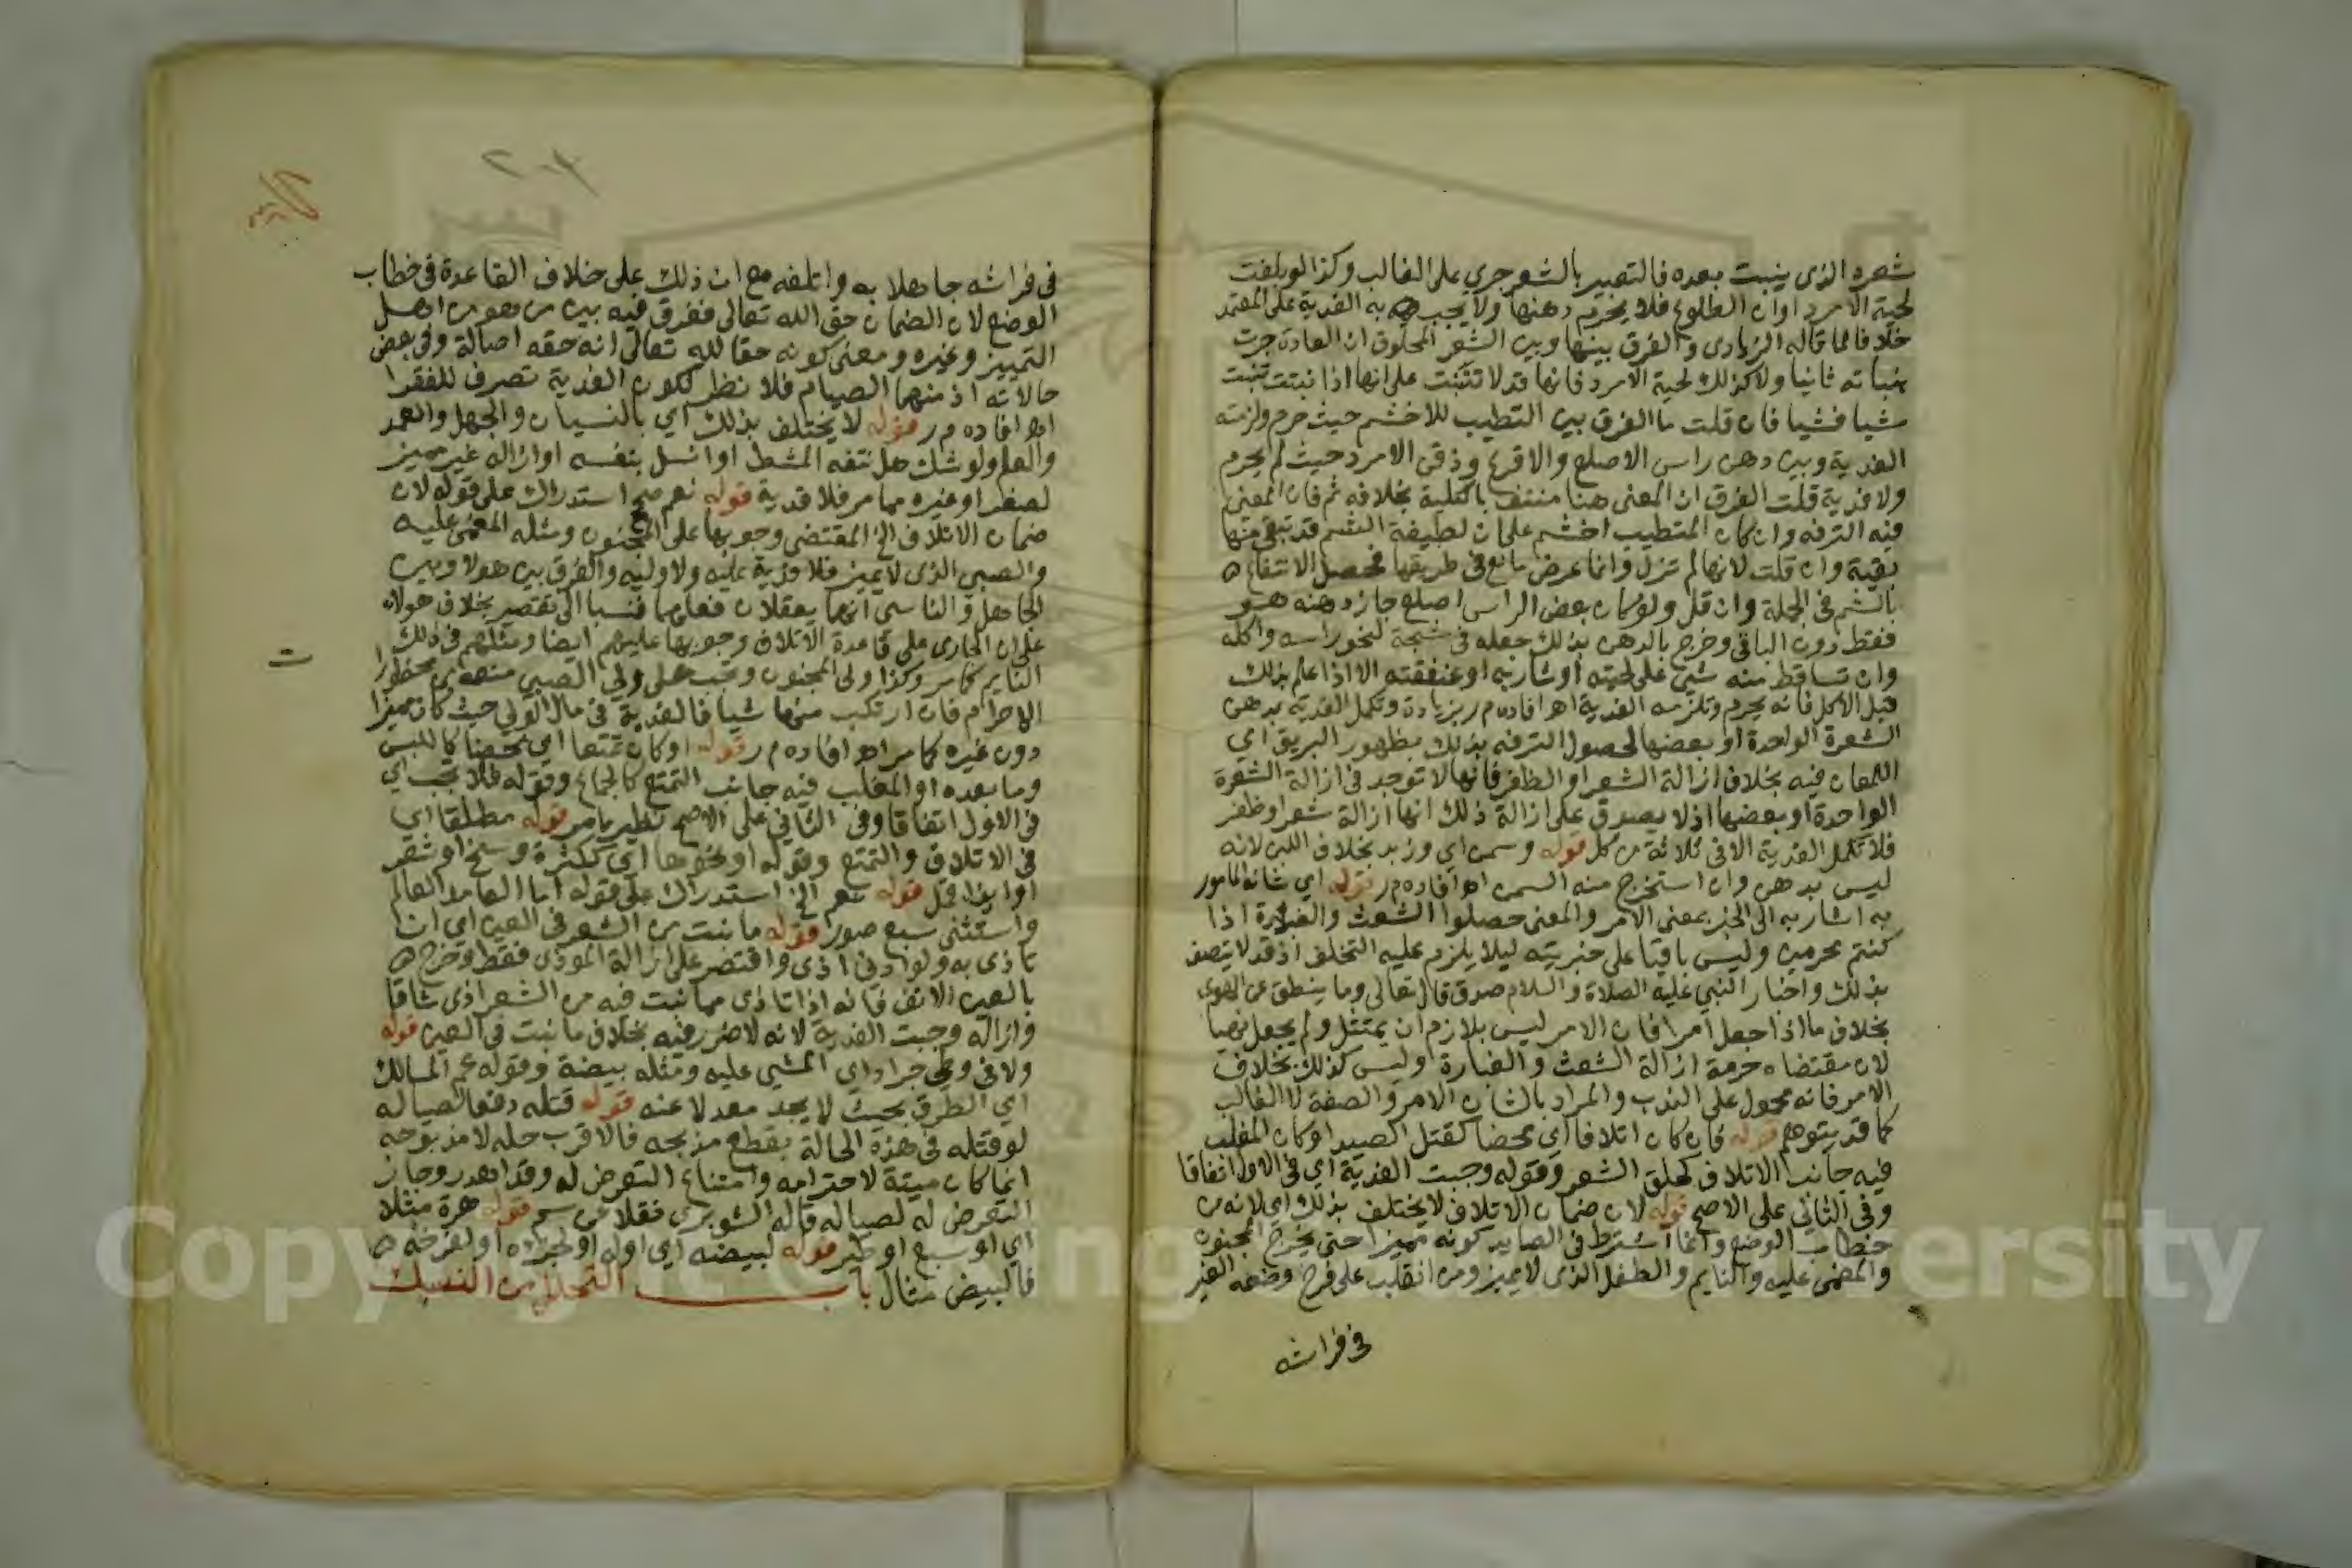 شعره الذى ينبت بعده فالتعبير بالشعر جري على الغالب وكذا لو بلغت
لحية الامرد اوان الطلوع فلا يحرم دهنها ولا يجب به الفدية على المعتمد
خلافا لما قاله الزيادى والفرق بينها وبين الشعر المحلوق ان العادة جرت
بنباته ثانيا ولا كذلك لحية الامرد فانها قد لا تنبت على انها اذا نبتت تنبت
شيا فشيا فان قلت ما الفرق بين التطيب للاخشم حيث حرم ولزمته
الفدية وبين دهن راس الاصلع والاقرع وذقن الامرد حيث لم يحرم
ولا فدية قلت الفرق ان المعنى هنا منتف بالكلية بخلافه ثم فان المعنى
فيه الترفه وان كان المتطيب اخشم على ان لطيفة الشم قد تبقى منها
بقية وان قلت لانها لم تزل وانما عرض مانع فى طريقها فحصل الانتفاع
بالشم فى الجملة وان قل ولو كان بعض الراس اصلع جاز دهنه هو
فقط دون الباقى وخرج بالدهن بذلك جعله فى شجة لنحو راسه واكله
وان تساقط منه شي على لحيته او شاربه او عنفقته الا اذا علم بذلك
قبل الاكل فانه يحرم وتلزمه الفدية اهـ افاده م ر بزيادة وتكمل الفدية بدهن
الشعرة الواحدة او بعضها لحصول الترفه بذلك بظهور البريق اي
اللمعان فيه بخلاف ازالة الشعر او الظفر فانها لا توجد فى ازالة الشعرة
الواحدة او بعضها اذ لا يصدق على ازالة ذلك انها ازالة شعر او ظفر
فلا تكمل الفدية الا فى ثلاثة من كل قوله وسمن اي وزبد بخلاف اللبن لانه
ليس بدهن وان استخرج منه السمن اهـ افاده م ر قوله اي شانه المامور
به اشار به الى الخبر بمعنى الامر والمعنى حصلوا الشعث والغبرة اذا
كنتم محرمين وليس باقيا على خبريته ليلا يلزم عليه التخلف اذ قد لا يتصف
بذلك واخبار النبي عليه الصلاة والسلام صدق قال تعالى وما ينطق عن الهوى
بخلاف ما اذا جعل امرا فان الامر ليس بلازم ان يمتثل ولم يجعل نهيا
لان مقتضاه حرمة ازالة الشعث والغبارة وليس كذلك بخلاف
الامر فانه محمول على الندب والمراد بالشان الامر والصفة لا الغالب
كما قد يتوهم قوله فان كان اتلافا اي محضا كقتل الصيد او كان المغلب
فيه جانب الاتلاف كحلق الشعر وقوله وجبت الفدية اي فى الاول اتفاقا
وفى الثانى على الاصح قوله لان ضمان الاتلاف لا يختلف بذلك اي لانه من
خطاب الوضع وانما اشترط فى الصايد كونه مميزا حتى يخرج المجنون
والمغمى عليه والنايم والطفل الذى لا يميز ومن انقلب على فرخ وضعه الغير
فى فراشه
فى فراشه جاهلا به واتلفه مع ان ذلك على خلاف القاعدة فى خطاب
الوضع لان الضمان حق الله تعالى ففرق فيه بين من هو من اهل
التمييز وغيره ومعنى كونه حقا لله تعالى انه حقه اصالة وفى بعض
حالاته اذ منهما الصيام فلا نظر لكون الفدية تصرف للفقرا
اهـ افاده م ر قوله لا يختلف بذلك اي بالنسيان والجهل والعمد
والعلم ولو شك هل نتفه المشط او انسل بنفسه او ازاله غير مميز
لصغر او غيره مما مر فلا فدية قوله نعم استدراك على قوله لان
ضمان الاتلاف الخ المقتضى وجوبها على المجنون ومثله المغمى عليه
والصبى الذى لا يميز فلا فدية عليه ولا وليه والفرق بين هولا وبين
الجاهل والناسي انهما يعقلان فعلهما فنسبا الى تقصير بخلاف هولاء
على ان الجارى على قاعدة الاتلاف وجوبها عليهم ايضا ومثلهم فى ذلك
النايم كما مر وكذا ولى المجنون وتجب على ولي الصبي منعه من محظور
الاحرام فان ارتكب منها شيا فالفدية فى مال الولي حيث كان مميزا
دون غيره كما مر اهـ افاده م ر قوله او كان تمتعا اي محضا كاللبس
وما بعده او المغلب فيه جانب التمتع كالجماع وقوله فلا تجب اي
فى الاول اتفاقا وفى الثاني على الاصح نظير ما مر قوله مطلقا اي
فى الاتلاف والتمتع وقوله او نحوهما اي ككثرة وسخ او شعر
او ايذا قمل قوله نعم الخ استدراك على قوله اما العامد العالم
واستثنى سبع صور قوله ما نبت من الشعر فى العين اي ان
تاذى به ولو ادنى اذى واقتصر على ازالة الموذى فقط وخرج
بالعين الانف فانه اذا تاذى مما نبت فيه من الشعر اذى شاقا
وازاله وجبت الفدية لانه لا ضرر فيه بخلاف ما نبت فى العين قوله
ولا فى وطي جراد اي المشي عليه ومثله بيضة وقوله عم المسالك
اي الطرق بحيث لا يجد معدلا عنه قوله قتله دفعا لصياله
لو قتله فى هذه الحالة بقطع مذبحه فالاقرب حله لا مذبوحه
انما كان ميتة لاحترامه وامتناع التعرض له وقد اهدر وجاز
التعرض له لصياله قاله الشوبرى فقلا عن سم قوله هرة مثلا
اي او سبع او طير قوله لبيضه اي اوله او لجزه او لفرخه
فالبيض مثال باب التحلل من النسك